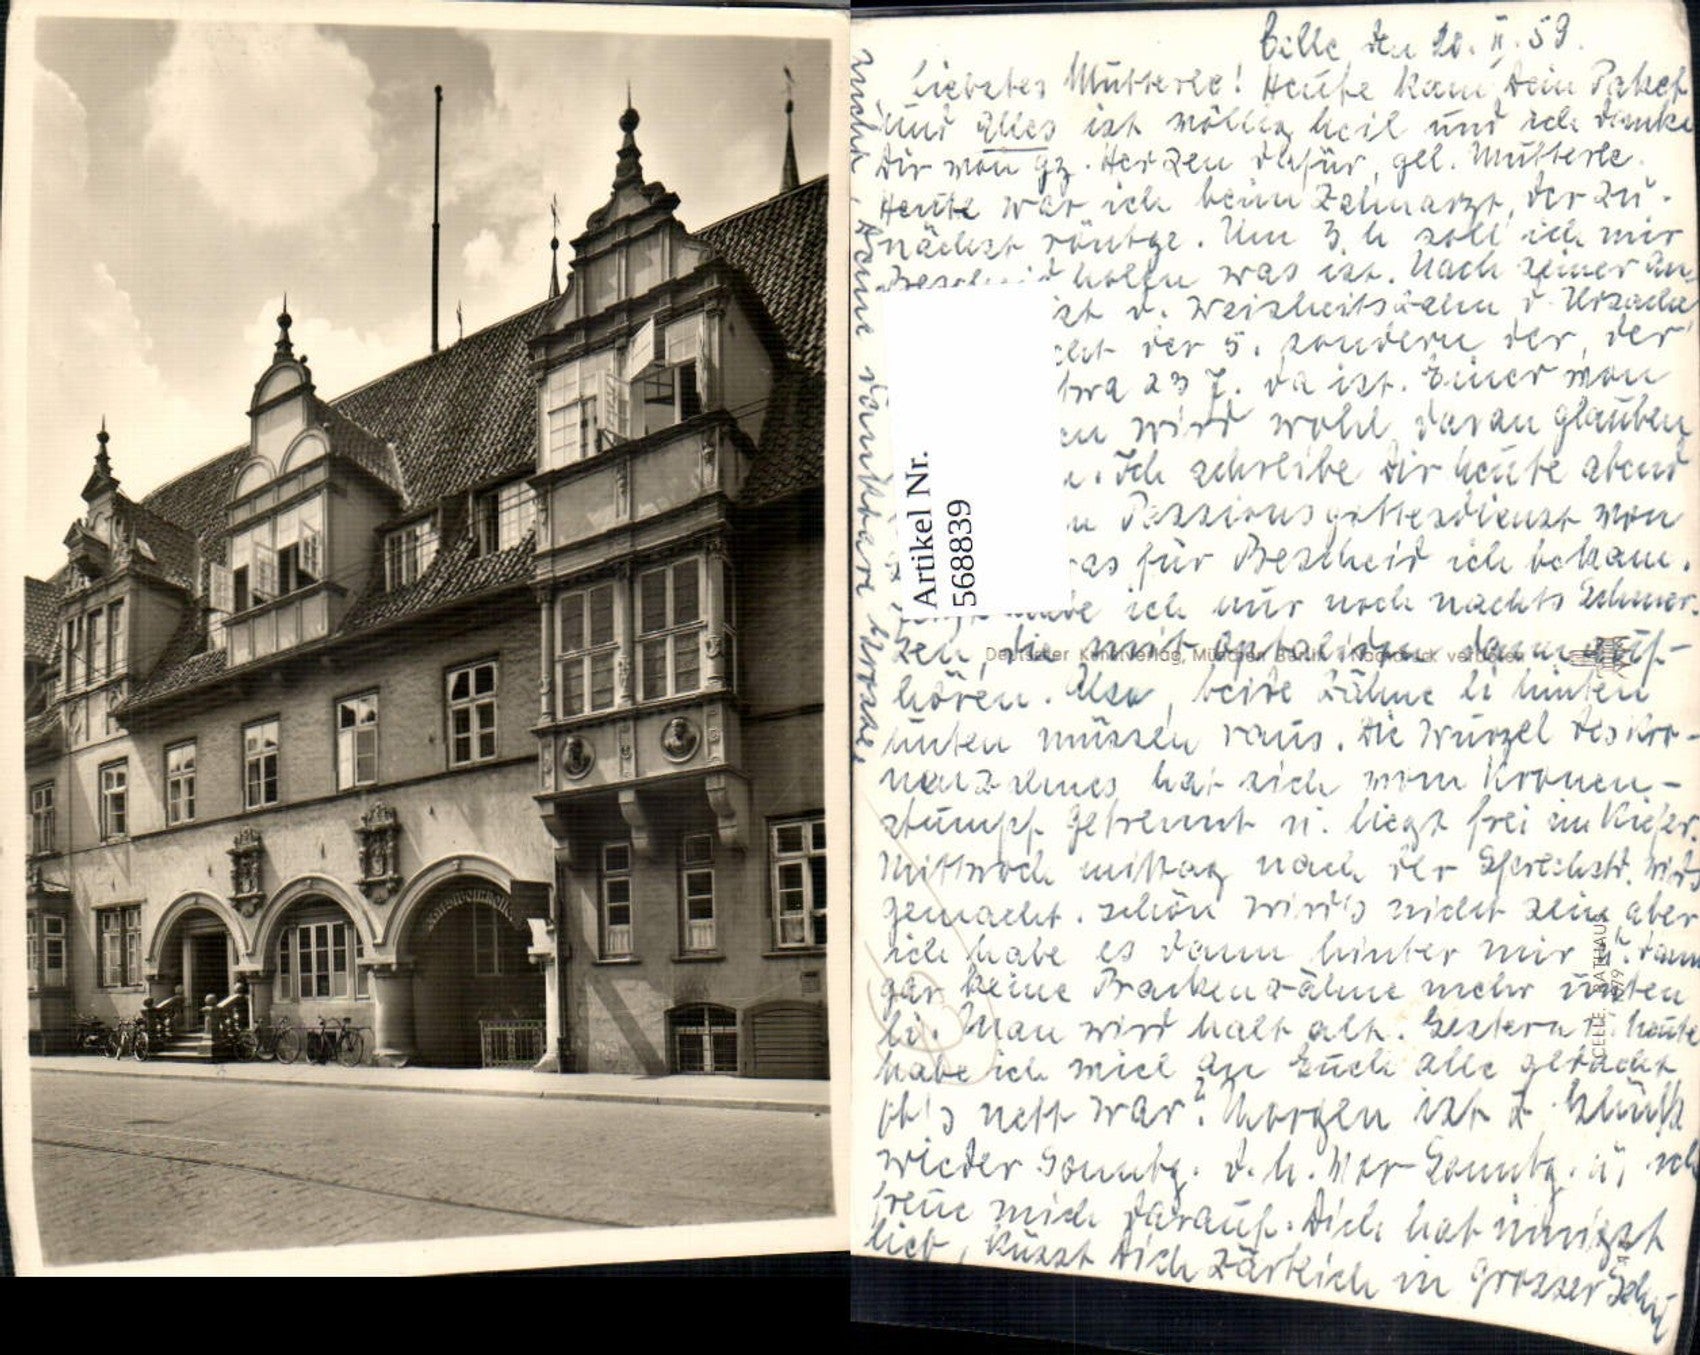 Celle den 20. II. 59.
Liebstes Mutterle! Heute kam Dein Paket
und alles ist völlig heil und ich danke
Dir von gz. Herzen dafür, gel. Mutterle.
Heute war ich beim Zahnarzt, der zu-
nächst röntge. Um 3 h soll ich mir
Bescheid holen was ist. Nach seiner An
ist d. Weisheitszahn d. Ursache
der 5. sondern der, der
7. da ist. Einer von
wird wohl daran glauben
Ich schreibe Dir heute abend
Passionsgottesdienst von
was für Bescheid ich bekam.
habe ich nur noch nachts Schmer-
zen, die mit dann auf-
hören. Also, beide Zähne li hinten
unten müssen raus. Die Wurzel des
hat sich vom Kronen-
stumpf getrennt u. liegt frei im Kiefer.
Mittwoch mittag nach der Sprechstd. wird's
gemacht. Schön wird's nicht sein aber
ich habe es dann hinter mir u. dann
gar keine Backenzähne mehr unten
li. Man wird halt alt. Gestern u. heute
habe ich viel an Euch alle gedacht
ob's nett war? Morgen ist z.
wieder Sonntg. d. h. Vor-Sonntg. u. ich
freue mich darauf. Dich hat innigst
lieb, küsst Dich zärtlich in grosser Sehn
sucht, Deine dankbare
Artikel Nr.
568839
Deutscher Kunstverlag, München Berlin · Nachdruck verboten
CELLE, RATHAUS